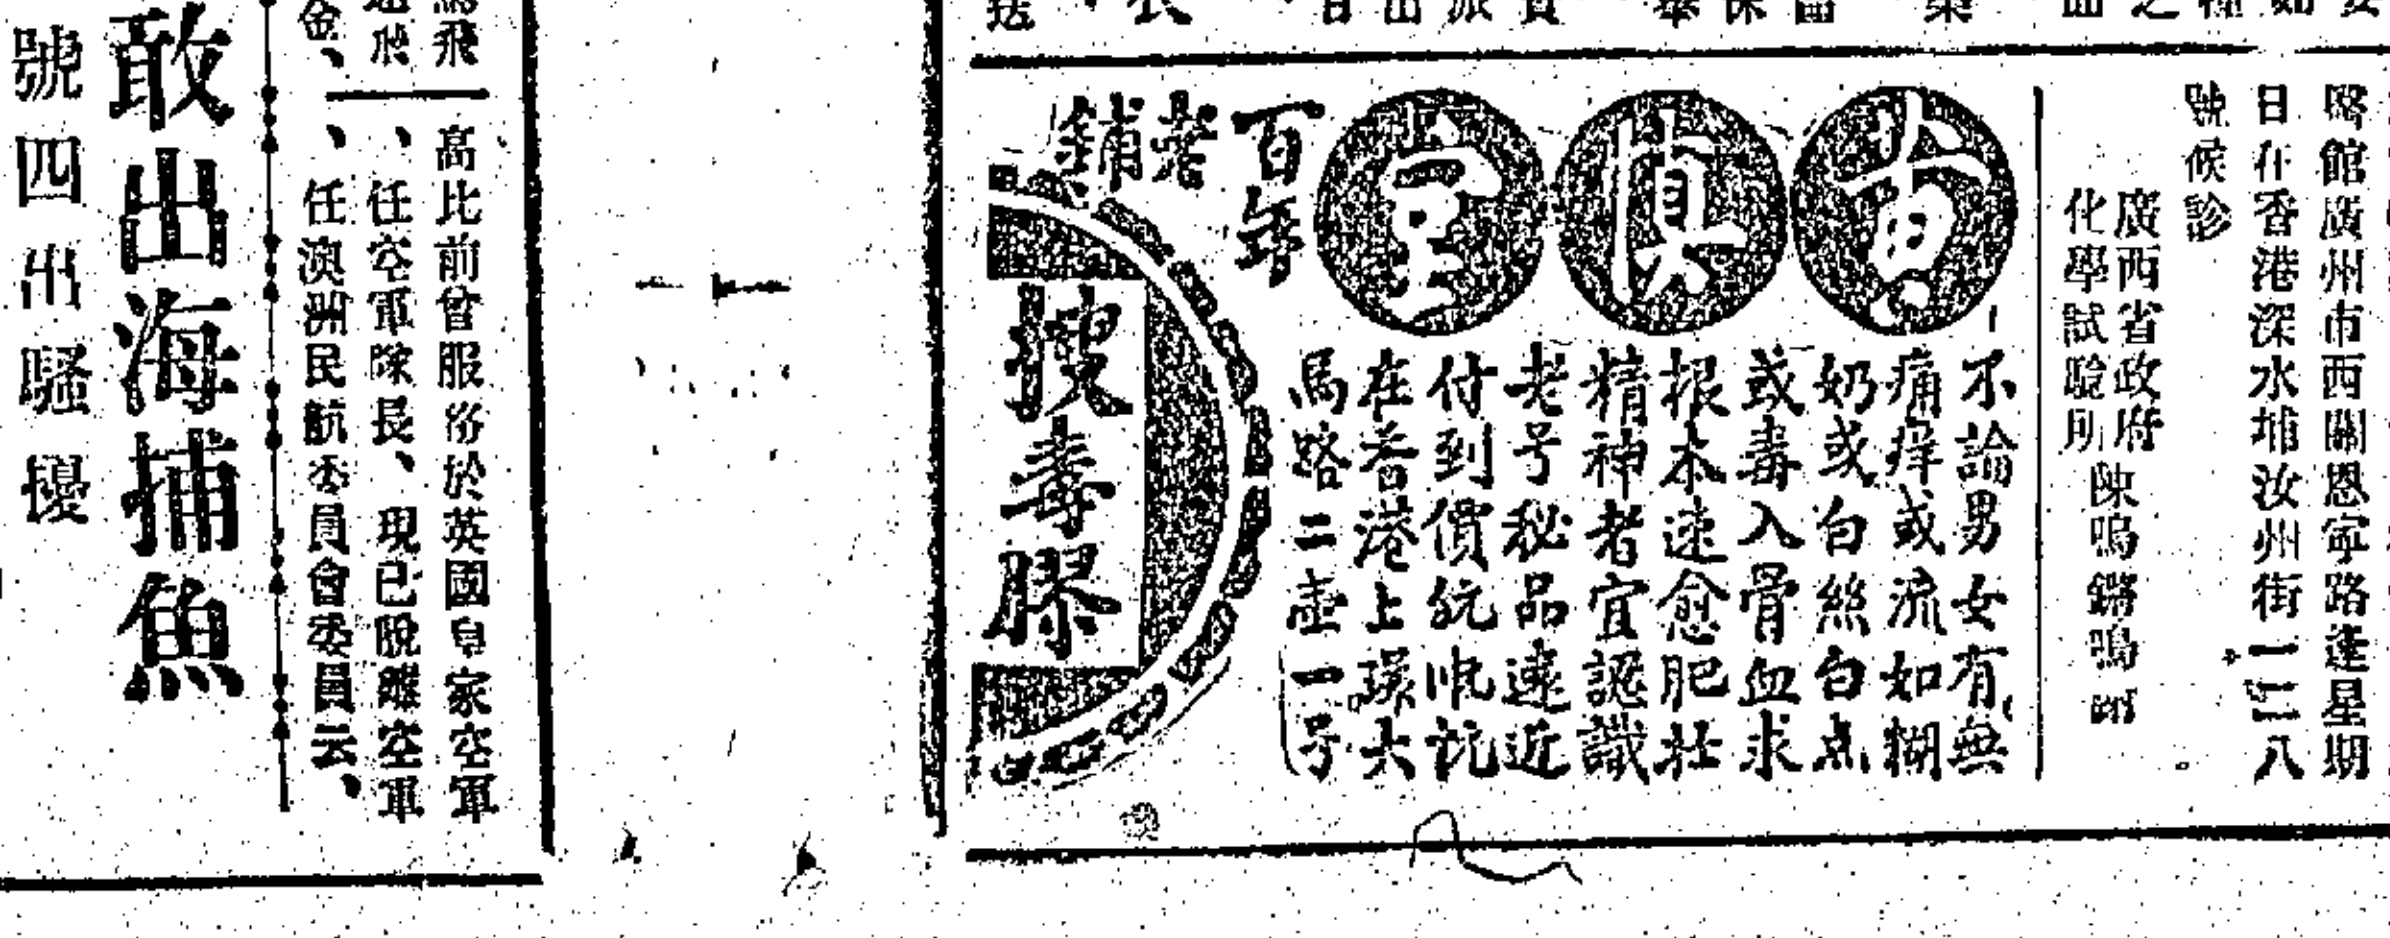 醫館廣州市西關恩寧路逢星期
日在香港深水埔汝州街一二八
號候診
廣西省政府
化學試驗所
陳鳴鏘鳴
不論男女有無
痛痒或流如糊
奶或白絲白点
或毒入骨血求
根本速愈肥壯
精神者宜認識
老号秘品遠近
付到價
在香港上環大
馬路二壹一号
百年
老鋪
搜毒膠
高比前曾服務於英國皇家空軍
、任空軍隊長、現已脫離空軍
、任澳洲民航委員會委員云、
敢出海捕魚
號四出騷擾